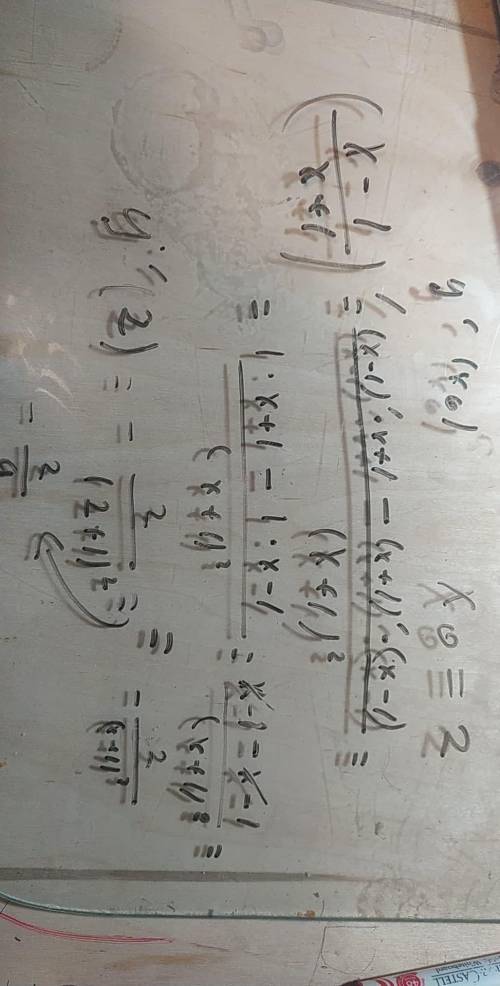 y'(x₀) x₀ = 2
(x-1/x+1)' = (x-1)'·(x+1) - (x+1)'·(x-1)/(x+1)² =
= 1·x+1 - 1·x-1/(x+1)² = /(x+1)² =
= 2/(x+1)²
y'(2) = 2/(2+1)² =
= 2/9
CASTELL